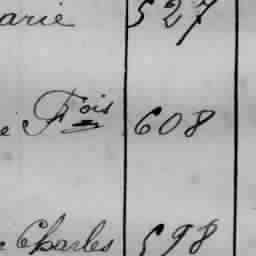 arie 527
e Fois 608
e Charles 598